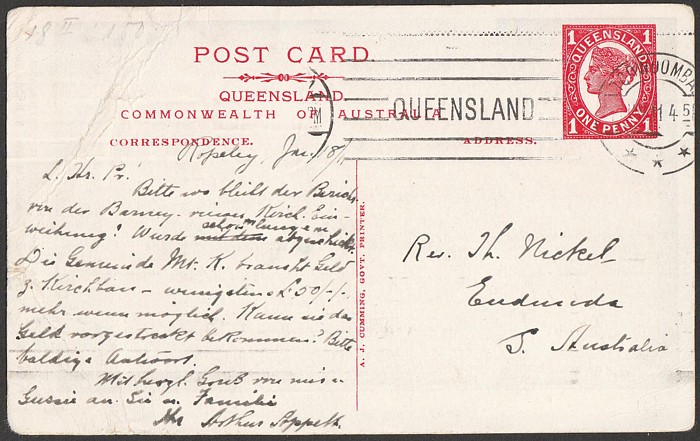 48 II
POST CARD.
QUEENSLAND.
COMMONWEALTH OF AUSTRALIA.
CORRESPONDENCE.
ADDRESS.
QUEENSLAND
PM
1 QUEENSLAND 1
1 ONE PENNY 1
OOMBA
14 5
Ropeley, Jan. 8/
L. Hr. Pr.
Bitte wo bleibt der Bericht
von der Kirch. Ein-
weihung? Wurde schon abgeschickt
Die Gemeinde Mt. K. braucht Geld
z. Kirchbau - wenigstens £50/-/-
mehr wenn möglich. Kann sie das
Geld vorgestreckt bekommen? Bitte
baldige Antwort.
Mit herzl. Gruß von mir u
Gussie an Sie u. Familie
Ihr Arthur Appelt.
A. J. CUMMING, GOVT. PRINTER.
Rev. Th. Nickel
Eudunda
S. Australia